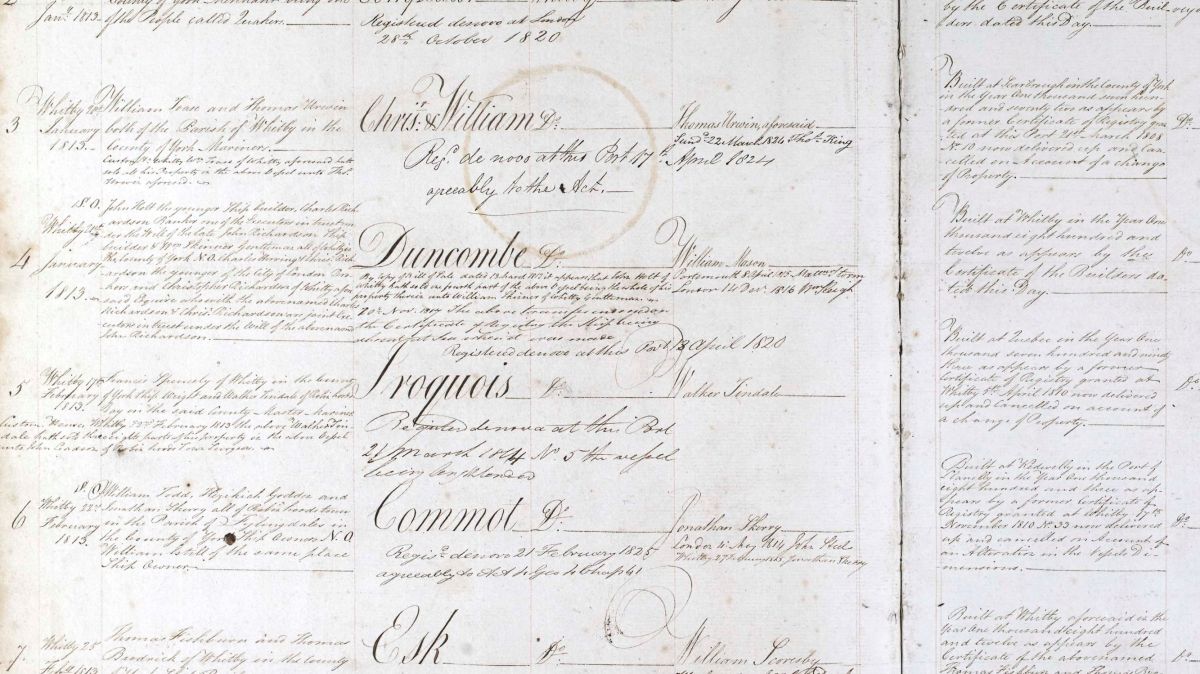 Jany. 1813
of the People called Quakers.
Registered denovo at London
28th October 1820
by the Certificate of the Buil-
ders dated this Day.
3
Whitby 20th
January
1813.
William Frase and Thomas Urwin
both of the Parish of Whitby in the
County of York Mariners.
Christ. & William Do.
Regd. de novo at this Port 17th April 1824
agreeably to the Act.
Thomas Urwin, aforesaid
Sund. 22 March 1824 Thos. King
Built at Scarbrough in the County of York
in the Year One thousand seven hun-
dred and seventy two as appears by
a former Certificate of Registry gran-
ted at this Port 21st March 1808
No. 10 now delivered up and Can-
celled on Account of a change
of Property.
Do.
4
Whitby
January
1813.
John Holt the younger Ship builder, Christr. Rich-
ardson Banker
under the Will of the late John Richardson Ship
builder & Wm. Skinner Gentleman all of Whitby in
the County of York N.O. Charles Herring & Chris. Rich-
ardson the younger of the City of London
and Christopher Richardson of Whitby afore
said Esquire who with the abovenamed Charles
Richardson & Chris. Richardson are joint Exe-
cutors in trust under the Will of the abovenamed
John Richardson.
Duncombe Do.
By Copy of Bill of Sale dated
Whitby hath sold one fourth part of the above Vessel being the whole of his
property therein unto William Skinner of Whitby Gentleman.
20th Nov. The above transfer indorsed on
the Certificate of Registry the Ship being
absent at Sea when it was made
Registered denovo at this Port 13 April 1820
William Mason.
Portsmouth 8 April 1815
London 14 Decr. 1816
Built at Whitby in the Year One
thousand eight hundred and
twelve as appears by the
Certificate of the Builders da-
ted this Day.
Do
5
Whitby 17th
February
1813.
Francis Spencely of Whitby in the County
of York Ship Wright and Walker Tindale of Robin hoods
Bay in the said County Master Mariner
Whitby 23rd February 1813 the above Walker Tin
dale hath sold three eighth parts of his property in the above Vessel
unto John of Robin hoods Town Surgeon.
Iroquois Do.
Registered denovo at this Port
21 March 1814 No. 5 the vessel
being lengthened
Walker Tindale
Built at Quebec in the Year One
thousand seven hundred and ninety
three as appears by a former
Certificate of Registry granted at
Whitby April 1810 now delivered
up and cancelled on account of
a change of Property.
Do.
6
Whitby 22nd
February
1813.
William Todd, Hezekiah Goddee and
Jonathan Skerry all of Robin hoods town
in the Parish of Fylingdales in
the County of York Ship Owners N.O.
William Estill of the same place
Ship Owner
Commot Do.
Regisd. denovo 21 February 1825
agreeably to Act 4 Geo 4 Chap 41
Jonathan Skerry
London 4 May 1814 John Steel
Whitby Jonathan Skerry
Built at Kidwelly in the Port of
Llanelly in the Year One thousand
eight hundred and three as ap-
pears by a former Certificate of
Registry granted at Whitby 17th
November 1810 No. 33 now delivered
up and cancelled on Account of
an Alteration in the Vessels di-
mensions.
Do.
7.
Whitby 25
Feby. 1813
Thomas Fishburn and Thomas
Brodrick of Whitby in the County
Esk Do
William Scoresby
Built at Whitby aforesaid in the
Year One thousand eight hundred
and twelve as appears by the
Certificate of the abovenamed
Thomas Fishburn and
Do